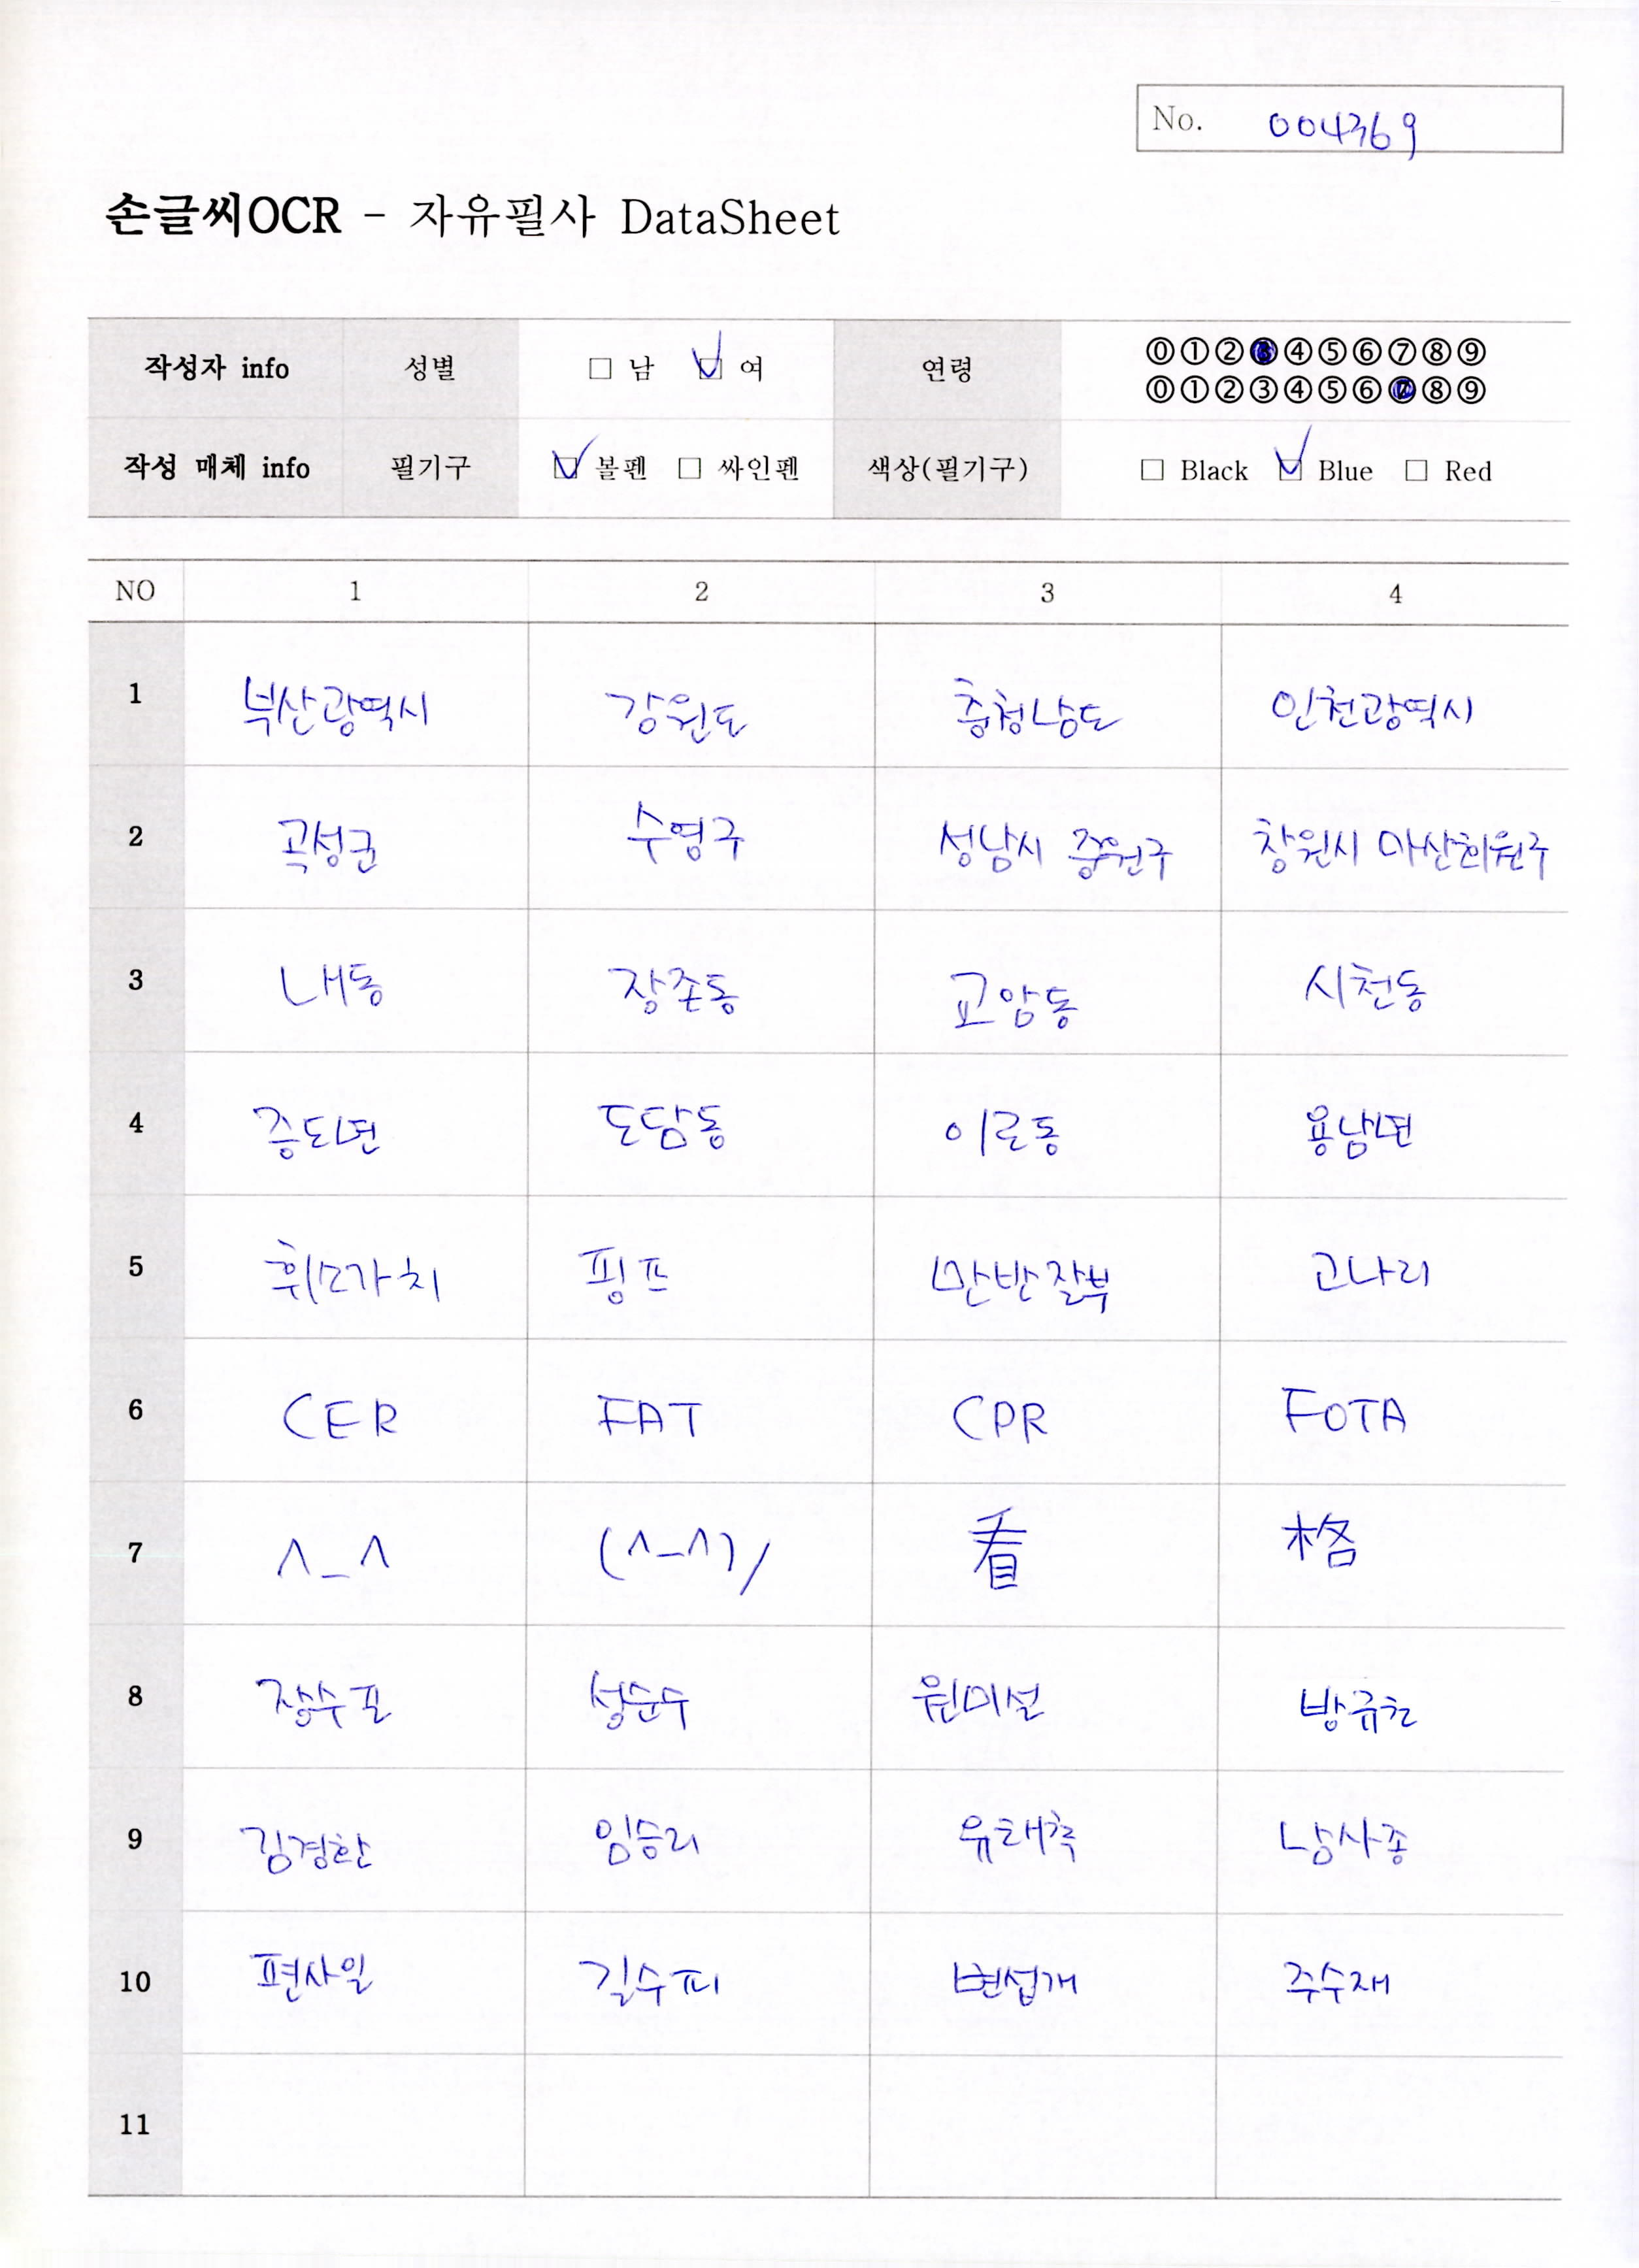 No. 004369
손글씨OCR - 자유필사 DataSheet
작성자 info 성별 □ 남 ☑ 여 연령 ⓪①②③④⑤⑥⑦⑧⑨
⓪①②③④⑤⑥⑦⑧⑨
작성 매체 info 필기구 ☑ 볼펜 □ 싸인펜 색상(필기구) □ Black ☑ Blue □ Red
NO 1 2 3 4
1 부산광역시 강원도 충청남도 인천광역시
2 곡성군 수영구 성남시 중원구 창원시 마산회원구
3 내동 장존동 교암동 시천동
4 증도면 도담동 이로동 용남면
5 휘모가치 핑프 만반잘부 고나리
6 CER FAT CPR FOTA
7 ^_^ (^_^)/ 看 格
8 장수표 성순두 원미설 방규천
9 김경한 임승리 유태축 남사종
10 편사일 길수피 변섭개 주수재
11